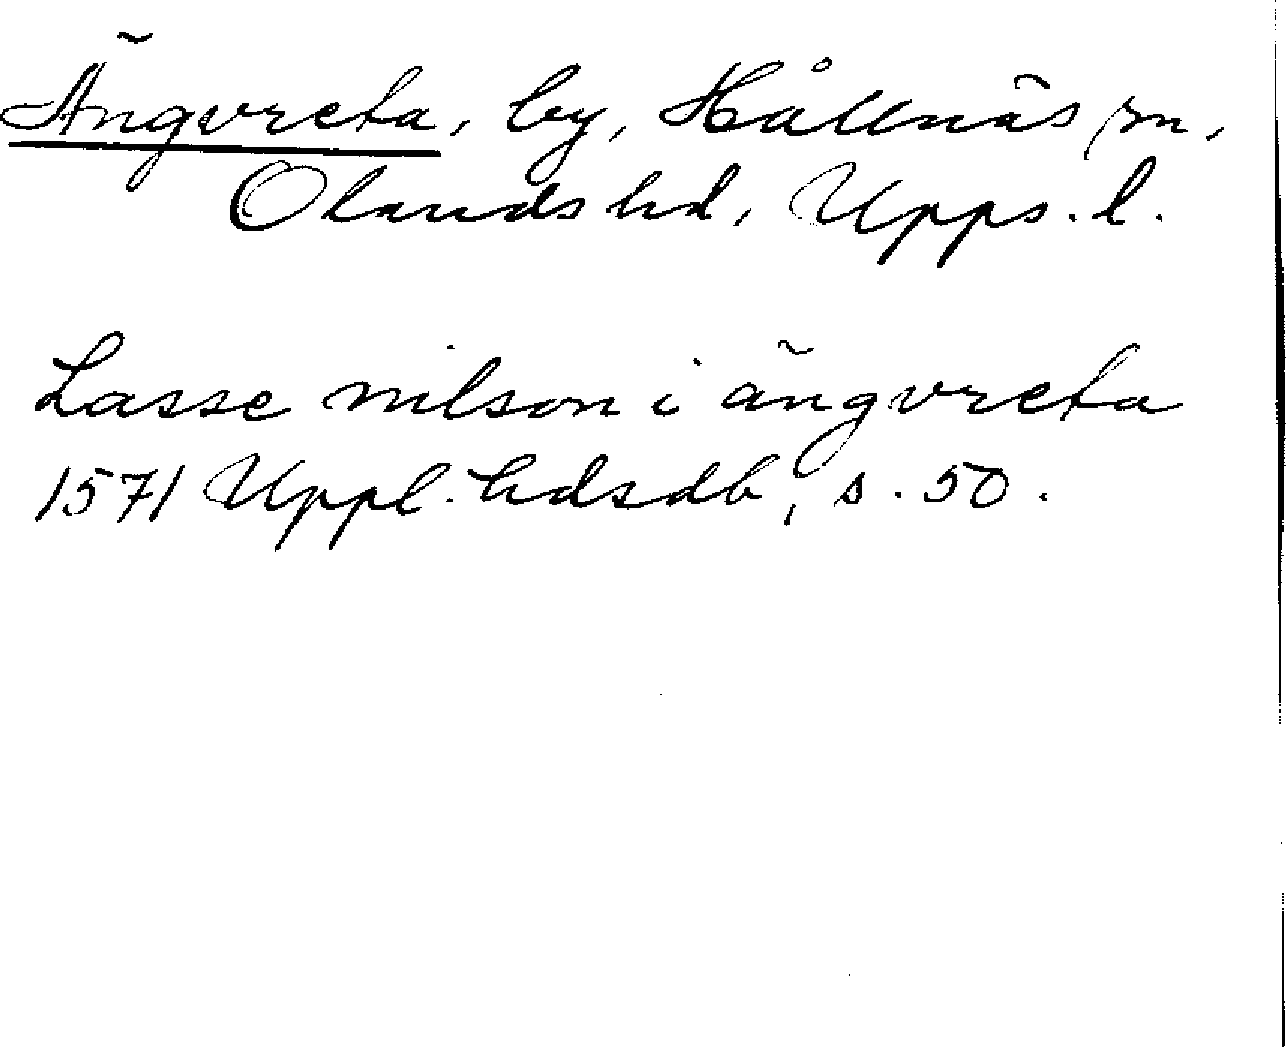 Ängvreta, by, Hållnäs sn,
Olands hd, Upps. l.
Lasse nilson i ängvreta
1571 Uppl. hdsdb, s. 50.